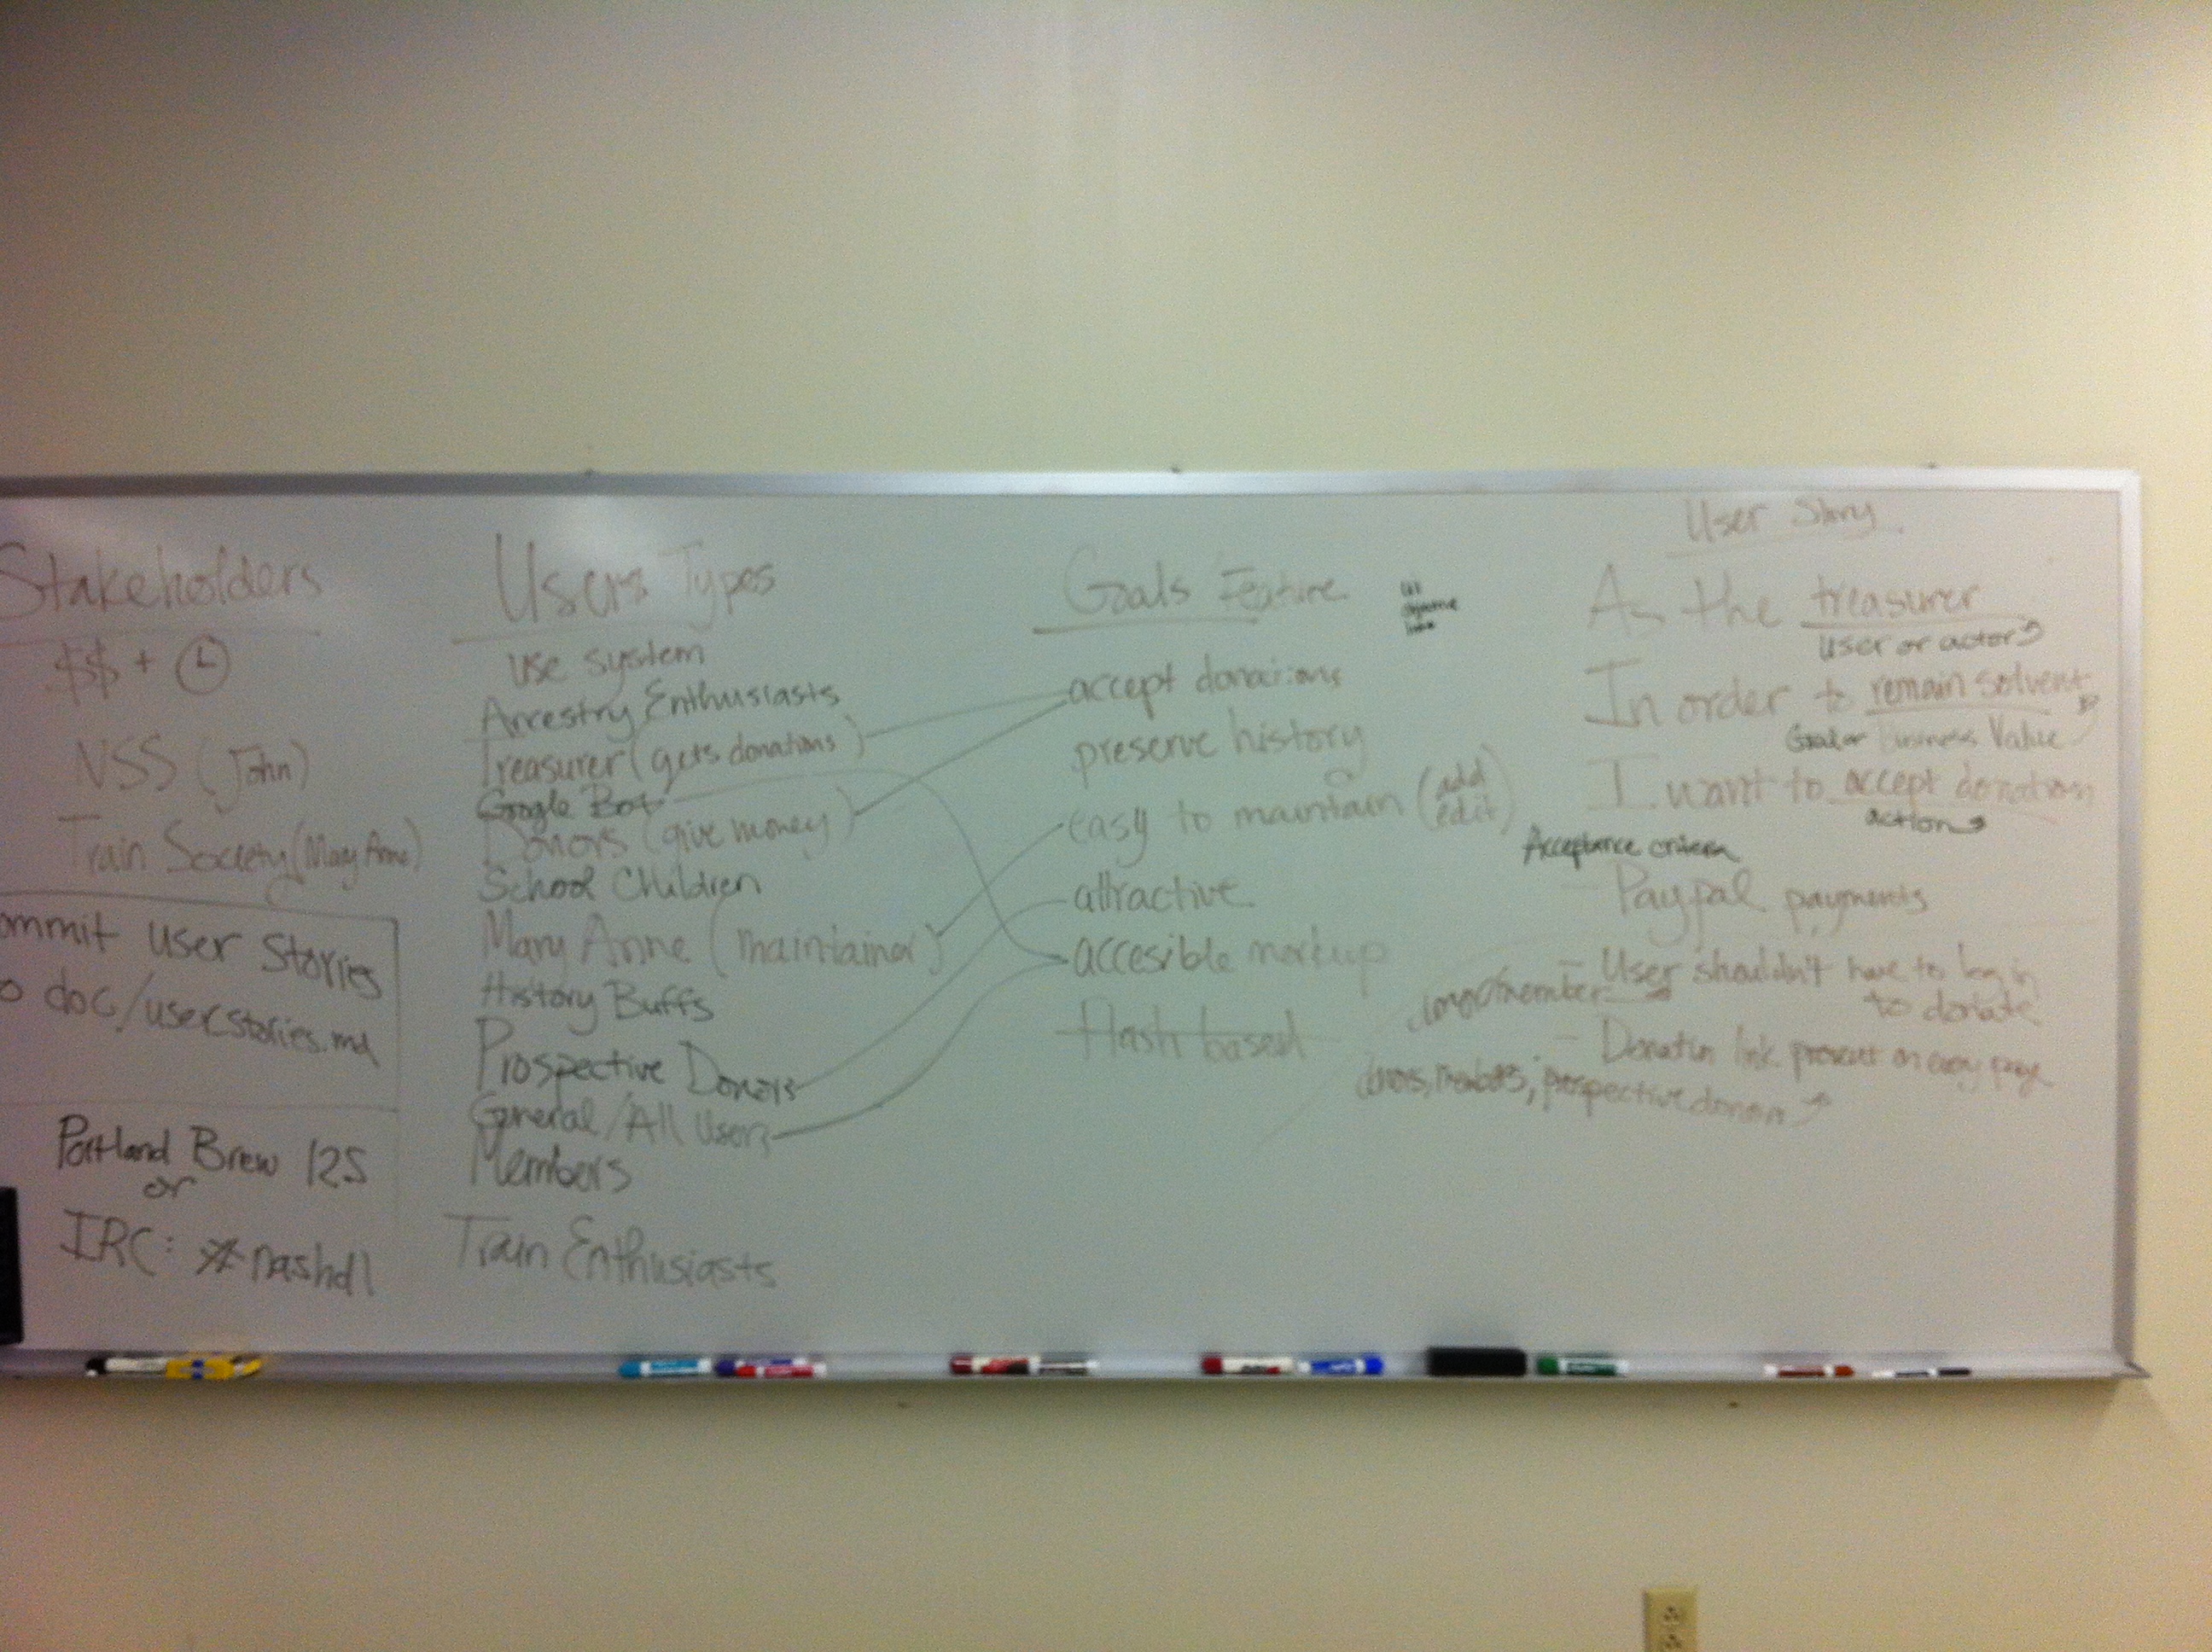 Stakeholders
$$ +
NSS (John)
Train Society (Mary Anne)
ommit user stories
o doc/user_stories.md
Portland Brew 12S
or
IRC: #nashdl
Users Types
use system
Ancestry Enthusiasts
Treasurer (gets donations)
Google Bot
Donors (give money)
School Children
Mary Anne (maintainer)
History Buffs
Prospective Donors
General/All Users
Members
Train Enthusiasts
Goals Feature
accept donations
preserve history
easy to maintain (add
edit)
attractive
accesible markup
flash based
User Story
As the treasurer
user or actor
In order to remain solvent
Goal or Business Value
I want to accept donation
action
Acceptance criteria
- Paypal payments
- User shouldn't have to log in
to donate
donor/member
- Donation link present on every page
donors, members, prospective donors